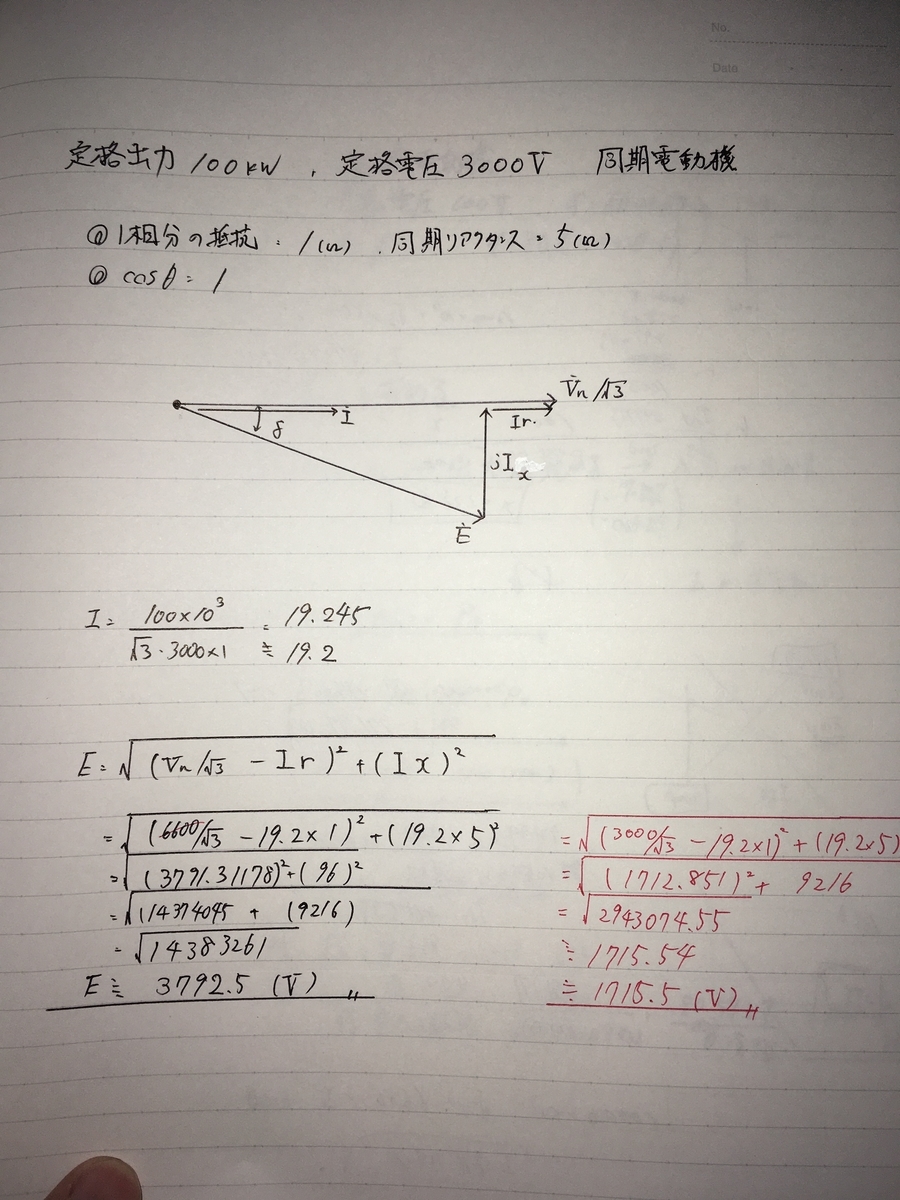 No.
Date
定格出力 100kW , 定格電圧 3000V 同期電動機
@ 1相分の抵抗 = 1(Ω) , 同期リアクタンス = 5(Ω)
@ cosθ = 1
V̇n/√3
İ
δ
Ir
jIx
Ė
I = 100×10³ / √3・3000×1 = 19.245
≒ 19.2
E = √(Vn/√3 - Ir)² + (Ix)²
= √(6600/√3 - 19.2×1)² + (19.2×5)²
= √(3791.31178)² + (96)²
= √(14374045 + (9216)
= √14383261
E ≒ 3792.5 (V)〃
= √(3000/√3 - 19.2×1)² + (19.2×5)
= √(1712.851)² + 9216
= √2943074.55
≒ 1715.54
≒ 1715.5 (V)〃